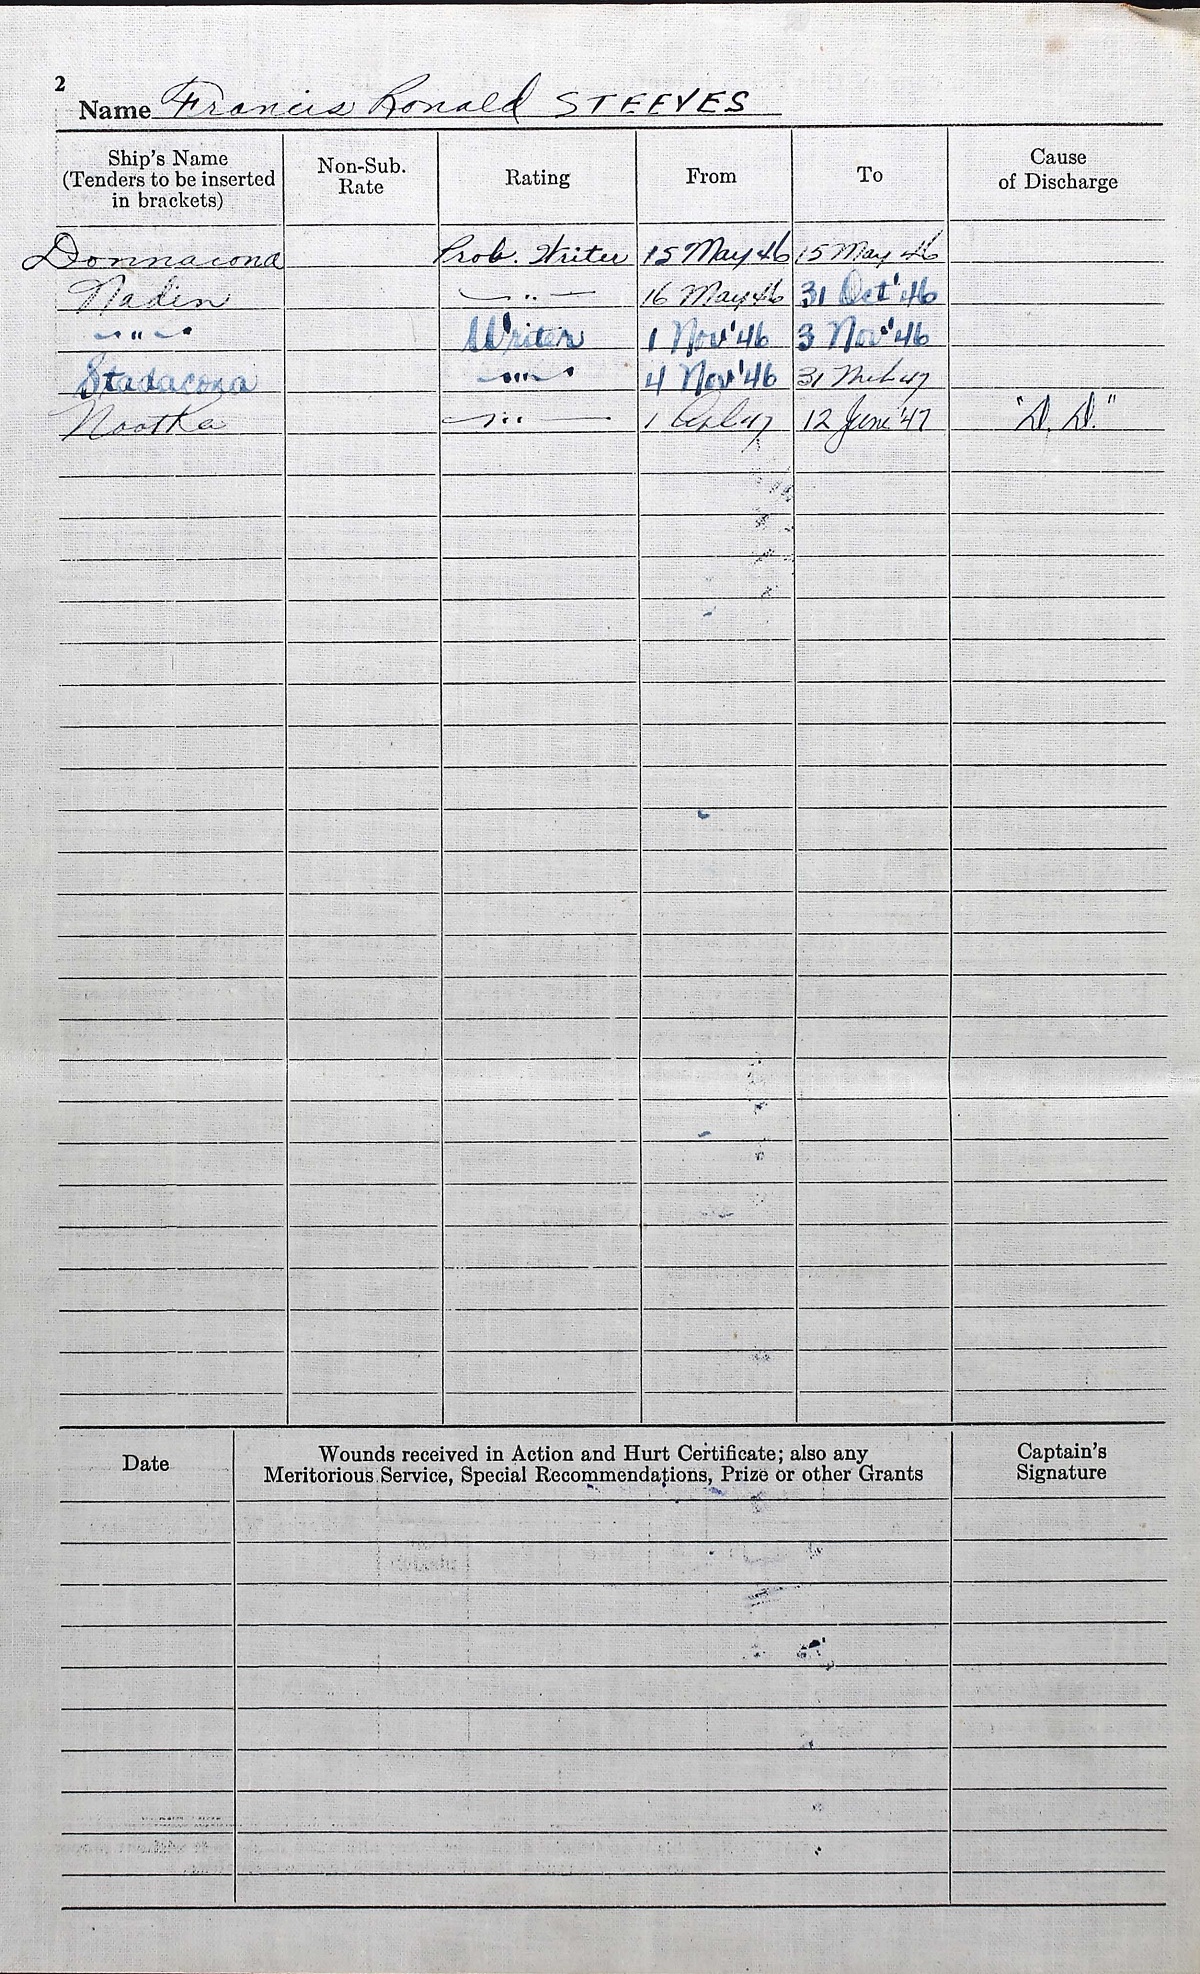 2
Name Francis Ronald STEEVES
Ship's Name
(Tenders to be inserted
in brackets)
Non-Sub.
Rate
Rating
From
To
Cause
of Discharge
Donnacona Prob. Writer 15 May 46 15 May 46
Naden — " — 16 May 46 31 Oct '46
— " — Writer 1 Nov '46 3 Nov '46
Stadacona — " — 4 Nov '46 31 Mch 47
Nootka — " — 1 Apl 47 12 June '47 "D.D."
Date
Wounds received in Action and Hurt Certificate; also any
Meritorious Service, Special Recommendations, Prize or other Grants
Captain's
Signature